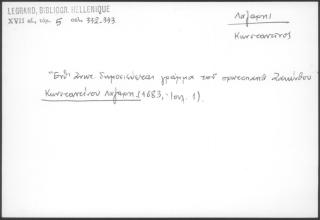 LEGRAND, BIBLIOGR. HELLENIQUE
XVII αἰ, τόμ. 5 σελ. 332-333
Λάζαρης
Κωνσταντῖνος
Ἐνθ' ἀνωτ. δημοσιεύεται γράμμα τοῦ πρωτοπαπᾶ Ζακύνθου
Κωνσταντίνου Λαζάρη (1683, Ἰουλ. 1).